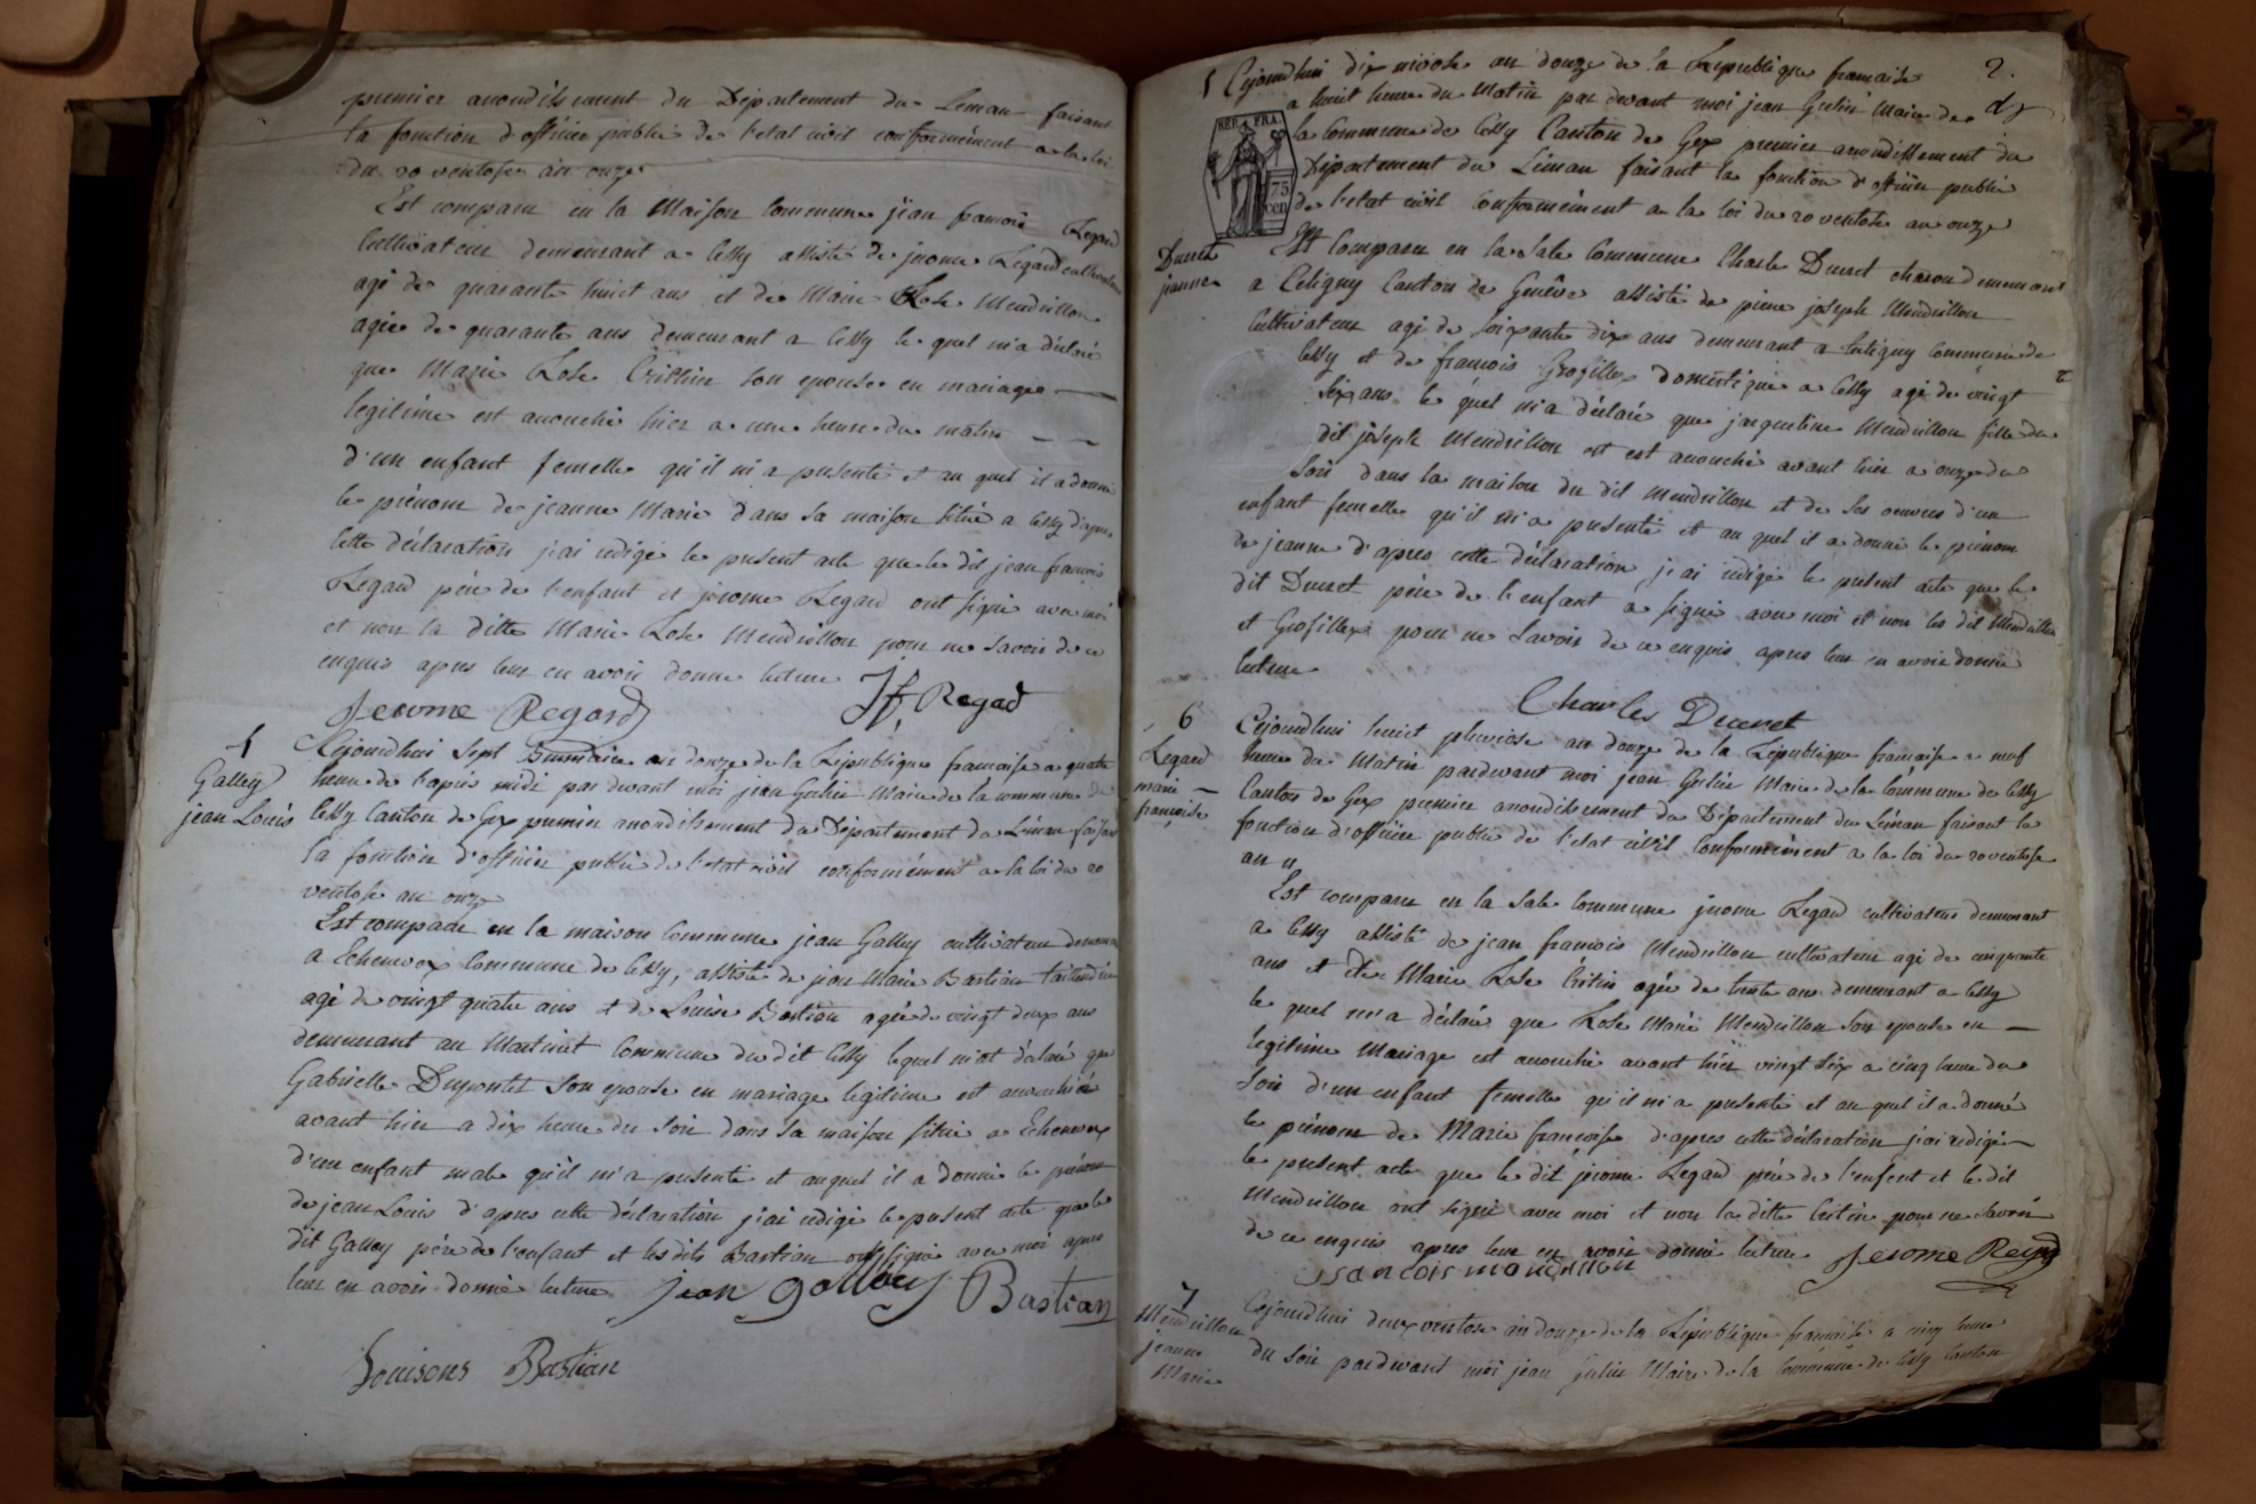 premier arrondissement du Département du Leman faisant
la fonction d'officier public de l'etat civil conformément a la loi
du 20 ventose an onze
Est comparu en la Maison commune jean francois Regard
Cultivateur demeurant a Cessy assisté de jerome Regard cultivateur
agé de quarante huit ans et de Marie Rose Mendrillon
agée de quarante ans demeurant a Cessy le quel m'a déclaré
que Marie Rose son epouse en mariage
legitime est accouché hier a une heure du matin
d'un enfant femelle qu'il m'a presenté et au quel il a donné
le prénom de jeanne Marie dans sa maison située a Cessy d'apres
cette déclaration j'ai redigé le present acte que le dit jean francois
Regard pére de l'enfant et jerome Regard ont signé avec moi
et non la ditte Marie Rose Mendrillon pour ne savoir de ce
enquis apres leur en avoir donné lecture
Jerome Regard Jf. Regad
Galley
jean Louis
Cejourdhui sept Brumaire an douze de la République francaise a quatre
heure de l'aprés midi par devant moi jean Gulin Maire de la commune de
Cessy Canton de Gex premier arrondissement du Département du Léman faisant
la fonction d'officier public de l'etat civil conformément a la loi du 20
ventose an onze
Est comparu en la maison commune jean Galley cultivateur demeurant
a Echenevex Commune de Cessy, assisté de jean Marie Bastian taillandier
agé de vingt quatre ans et de Louise Bastian agée de vingt deux ans
demeurant au Martinet Commune du dit Cessy lequel m'at déclaré que
Gabrielle Dupontet son epouse en mariage legitime est accouchée
avant hier a dix heure du soir dans sa maison située a Echenevex
d'un enfant male qu'il m'a presenté et auquel il a donné le prénom
de jean Louis d'apres cette déclaration j'ai redigé le present acte que le
dit Galley pére de l'enfant et les dits Bastian ont signé avec moi apres
leur en avoir donné lecture jean galley Bastian
Louisons Bastian
2.
5 Cejourdhui dix nivose an douze de la Republique francaise
a huit heure du Matin par devant moi jean Gulin Maire de
la Commune de Cessy Canton de Gex premier arrondissement du
REP. FRA.
75
cen
Département du Léman faisant la fonction d'officier public
de l'etat civil conformément a la loi du 20 ventose an onze
Ducret
jeanne
Est Comparu en la Sale Commune Charle Ducret charon demeurant
a Celigny Canton de Genêve assisté de pierre joseph Mendrillon
Cultivateur agé de soixante dix ans demeurant a commune de
Cessy et de francois Grofillex domestique a Cessy agé de vingt
six ans le quel m'a déclaré que jacqueline Mendrillon fille du
dit joseph Mendrillon est accouché avant hier a onze du
soir dans la maison du dit Mendrillon et de ses oeuvres d'un
enfant femelle qu'il m'a presenté et au quel il a donné le prénom
de jeanne d'apres cette déclaration j'ai redigé le present acte que le
dit Ducret pére de l'enfant a signé avec moi et non les dit Mendrillon
et Grofillex pour ne savoir de ce enquis apres leur en avoir donné
lecture
Charles Ducret
6
Regard
marie
francoise
Cejourdhui huict pluviose an douze de la République francaise a neuf
heure du Matin pardevant moi jean Gulin Maire de la Commune de Cessy
Canton de Gex premier arrondissement du Département du Léman faisant la
fonction d'officier public de l'etat civil conformément a la loi du 20 ventose
an 11
Est comparu en la sale commune jerome Regard cultivateur demeurant
a Cessy assisté de jean francois Mendrillon cultivateur agé de cinquante
ans et de Marie Rose Critin agée de trente ans demeurant a Cessy
le quel m'a déclaré que Rose Marie Mendrillon son epouse en
legitime Mariage est accouché avant hier vingt six a cinq heure du
soir d'un enfant femelle qu'il m'a presenté et au quel il a donné
le prénom de Marie francoise d'apres cette déclaration j'ai redigé
le present acte que le dit jerome Regard pére de l'enfant et le dit
Mendrillon ont signé avec moi et non la ditte Critin pour ne savoir
de ce enquis apres leur en avoir donné lecture Jerome Regard
francois mondrillon
7
Mendrillon
jeanne
Marie
Cejourdhui deux ventose an douze de la République francaise a cinq heure
du soir pardevant moi jean Gulin Maire de la Commune de Cessy Canton